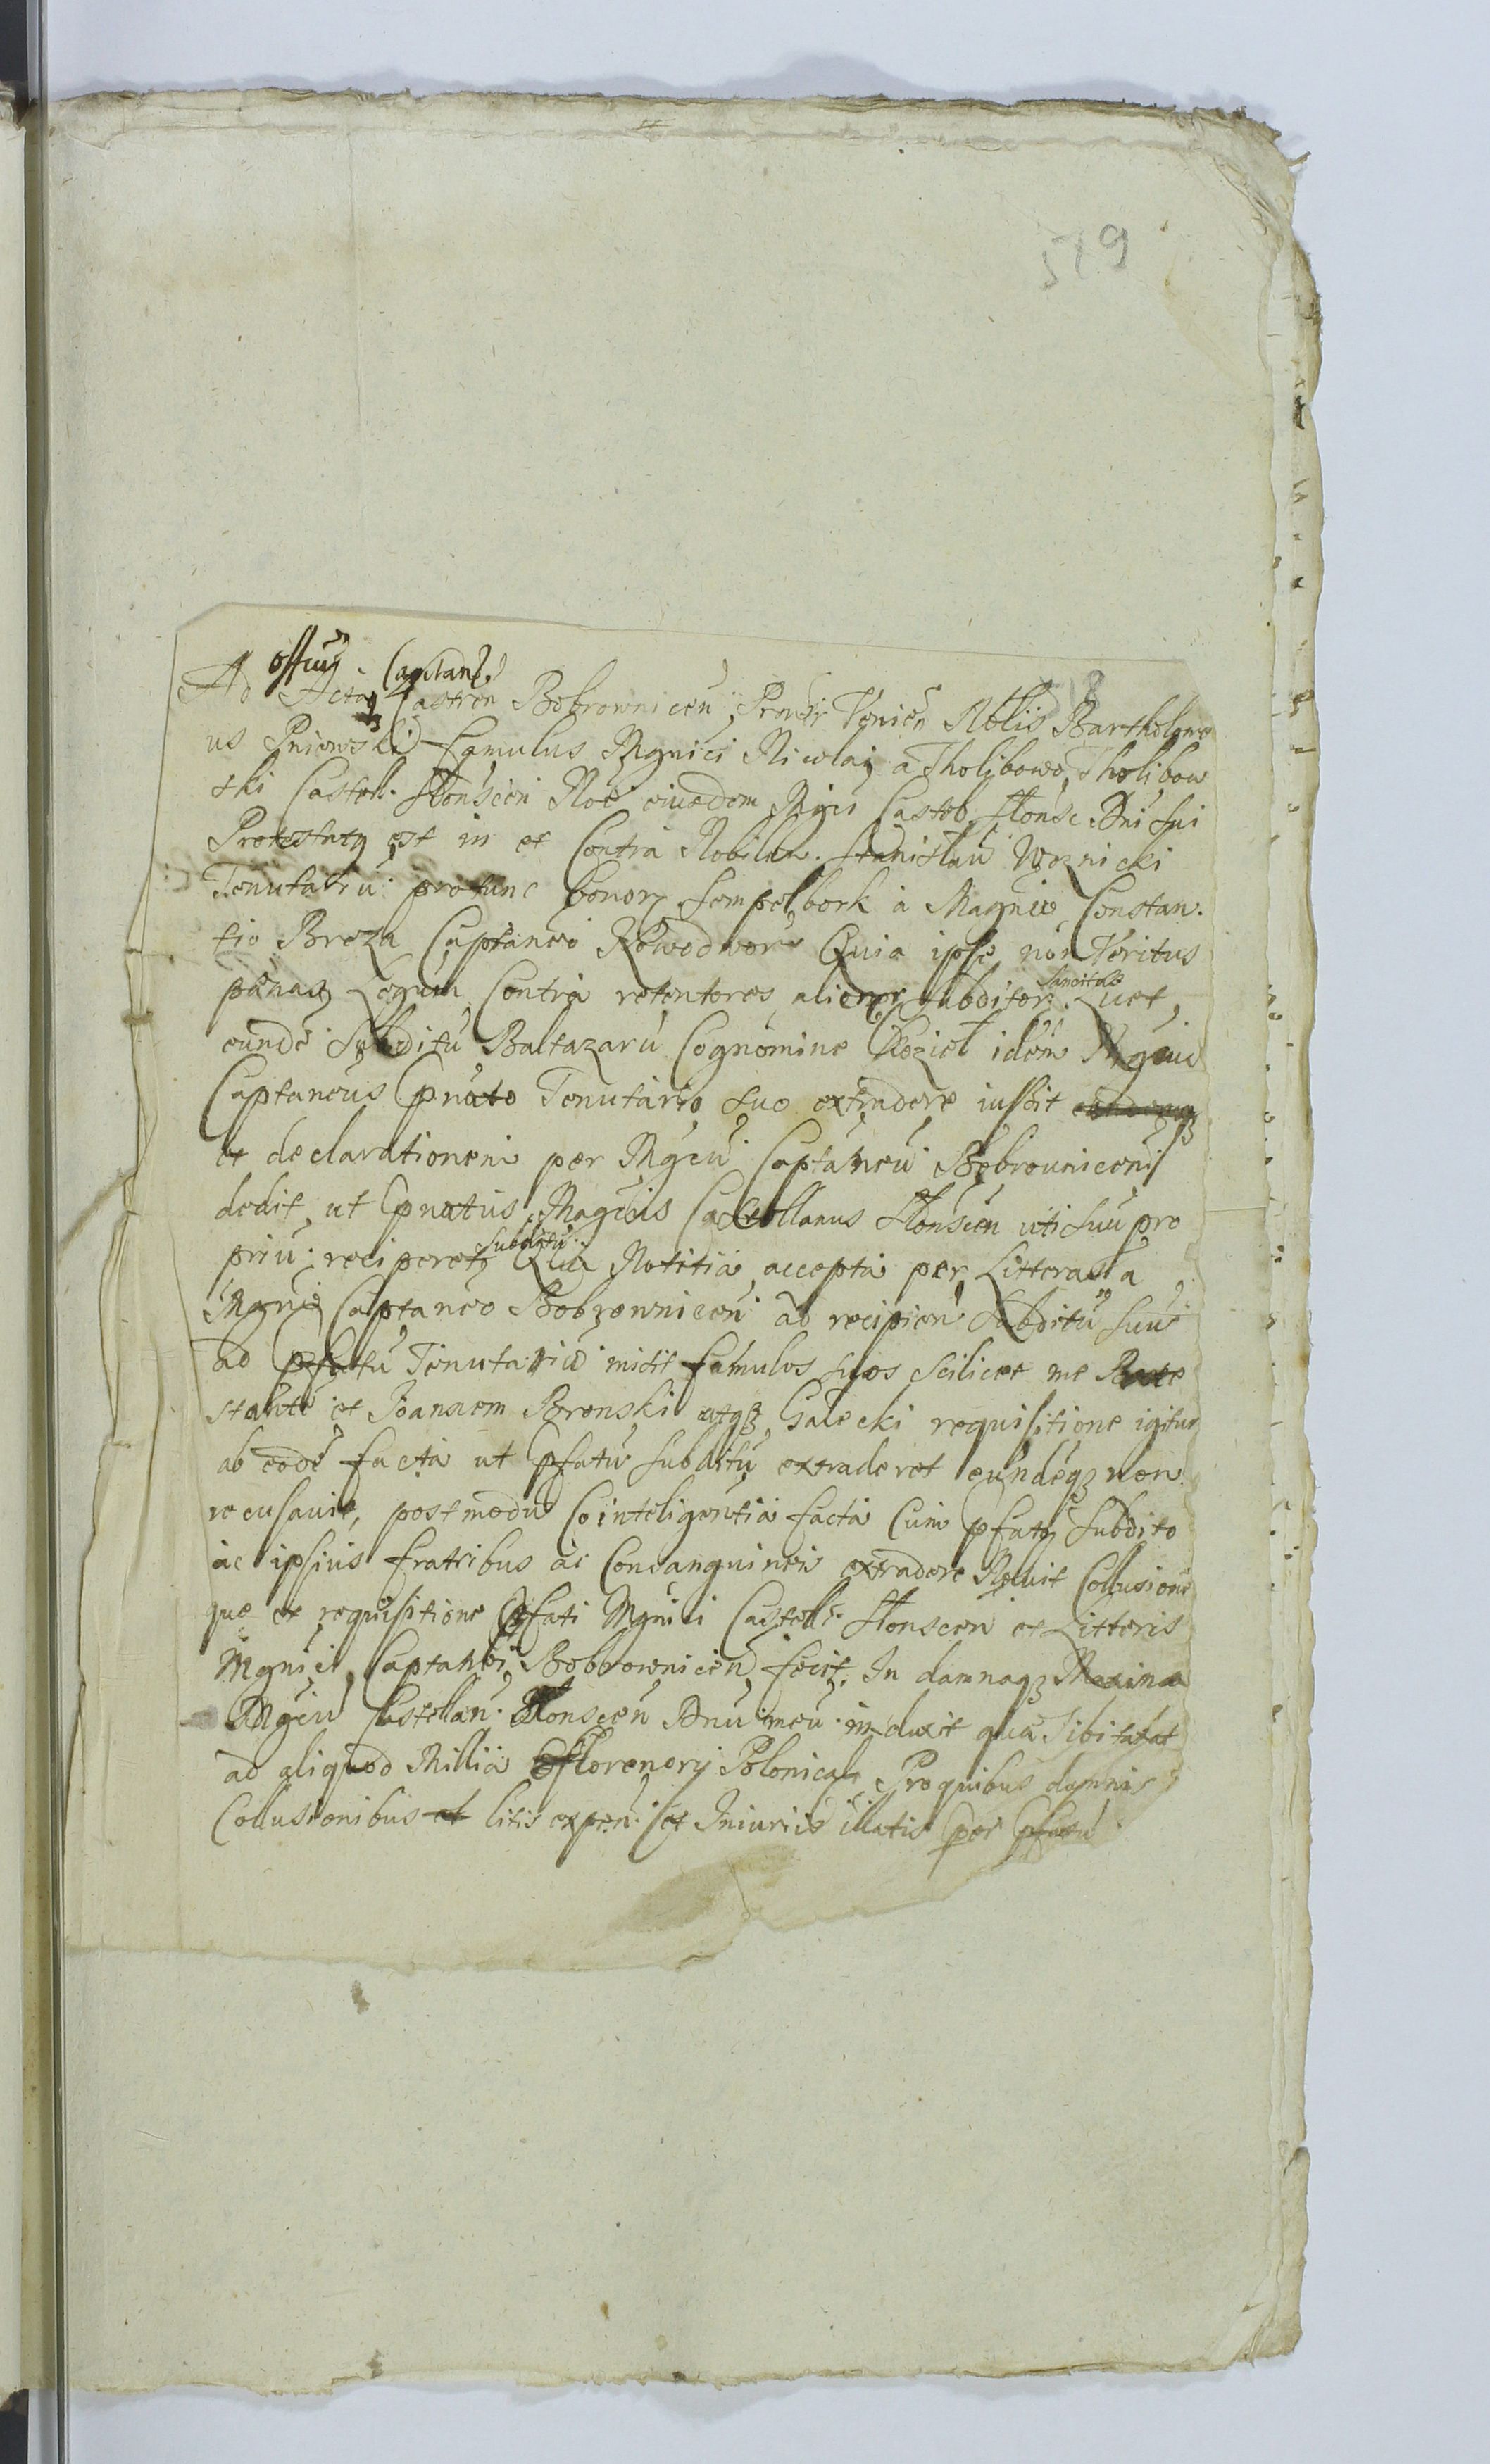 519
Offiuȝ Capitane.
Ad Actaqȝ Castren Bobrownicen; Prouir Venien Nobilis Bartholome
us Pniewski famulus Mgnici Nicolai a Tholibowo, Tholibow
ski Castell. Słonscen Noe eiusdem Mgci Castel. Słonsc. Dni sui
Protestatq est in et Contra Nobilem. Stanislau Woznicki
Tenutariu protunc bonorȝ Sempelbork a Magnico Constan.
tio Breza Captaneo Nowodwor Quia ipse non Veritus
pœnasqȝ Legum Contra retentores alienor Subditor: Sancitas Luet,
eunde Subditu Baltazaru Cognomine Koziel idem Mgcus
Captaneus Pnato Tenutario suo extradere iussit
et declarationem per Mgcu Captaneu Bobrownicens
dedit, ut Pnatus Magcus Castellanus Słonscen uti suu pro
priu reciperetȝ Subditu Qua Notitia accepta per Litteras a
Mgnco Captaneo Bobrownicen ad recipien Subditu suu
ad pfatu Tenutariu misit famulos suos scilicet me Prote
stante et Joannem Bronski atqȝ Galecki requisitione igitur
ab eode facta ut pfatu Subditu extraderet eundeqȝ non
recusauit, postmodu Cointeligentia facta Cum pfato Subdito
ac ipsius fratribus ac Consanguineis extradere Noluit Collusione
que et requisitione pfati Mgnici Castell. Słonscen et Litteris
Mgnici Captanei Bobrownicen fecit. In damnaqȝ Maxima
Mgcu Castellan. Słonscen Dnu meu induxit qua Sibi taxat
ad aliquod Millia Florenorȝ Polonical. Pro quibus damnis
Collusionibus et litis expen. et Iniuriis illatis per pfatu